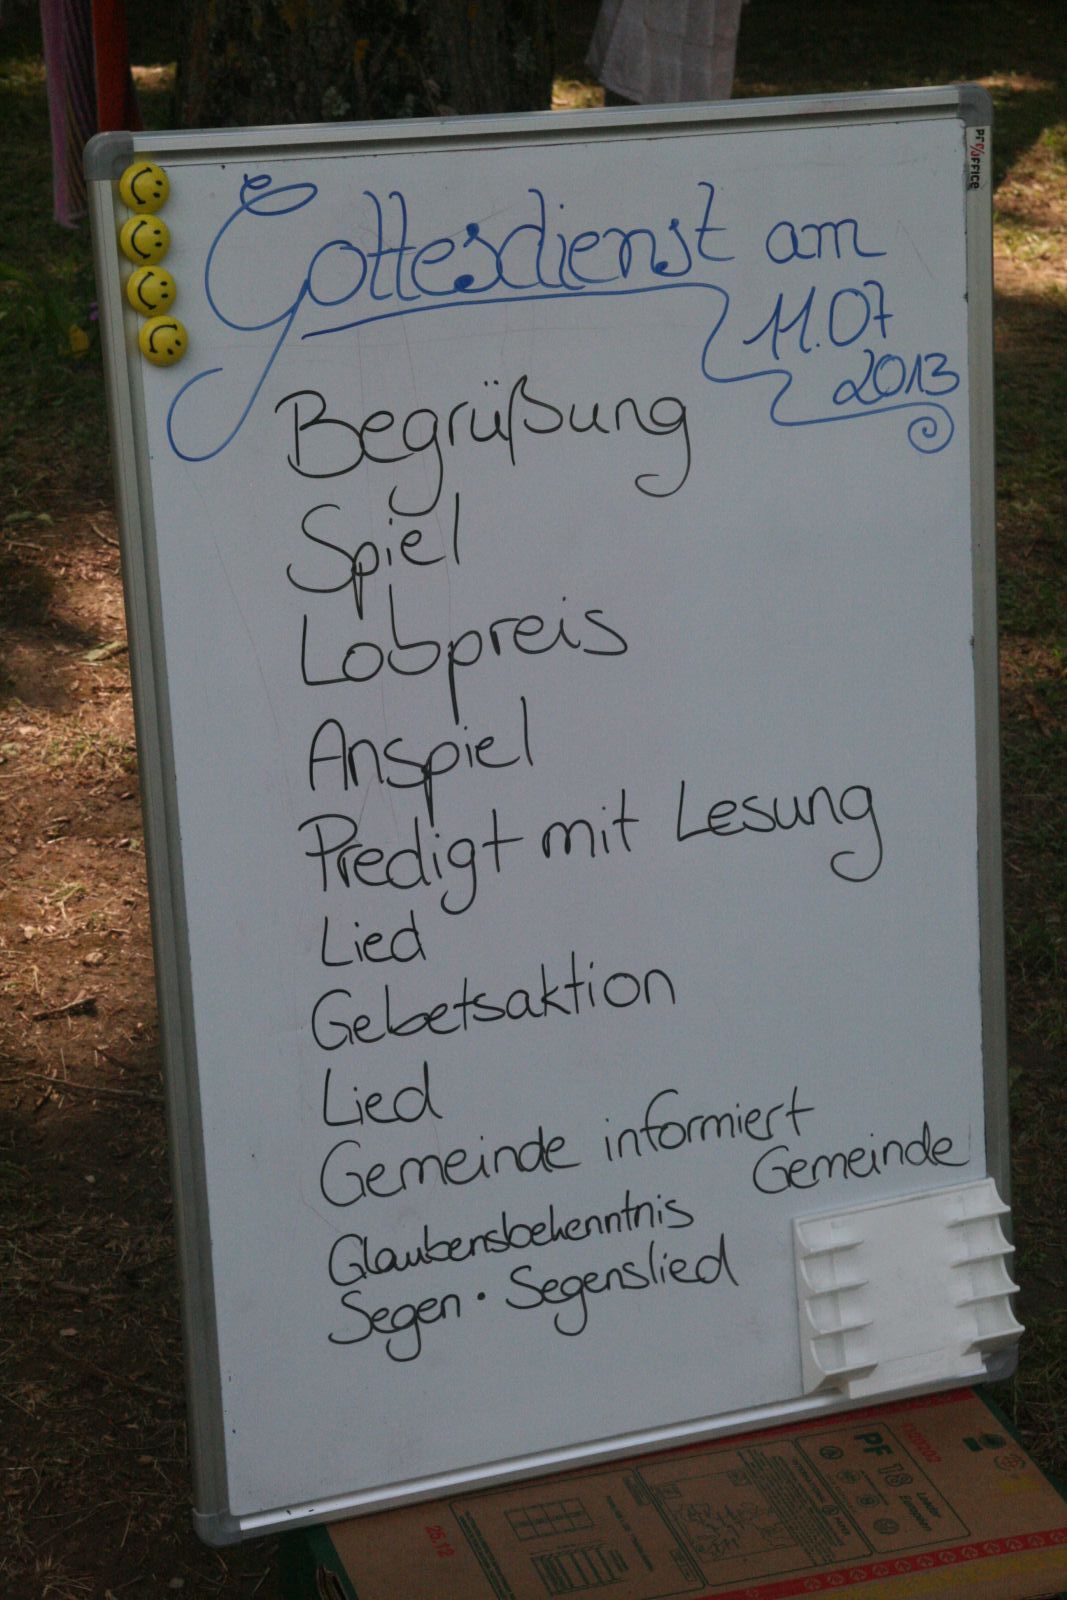 Gottesdienst am
11.07
2013
Begrüßung
Spiel
Lobpreis
Anspiel
Predigt mit Lesung
Lied
Gebetsaktion
Lied
Gemeinde informiert
Gemeinde
Glaubensbekenntnis
Segen · Segenslied
PF 18
25.12